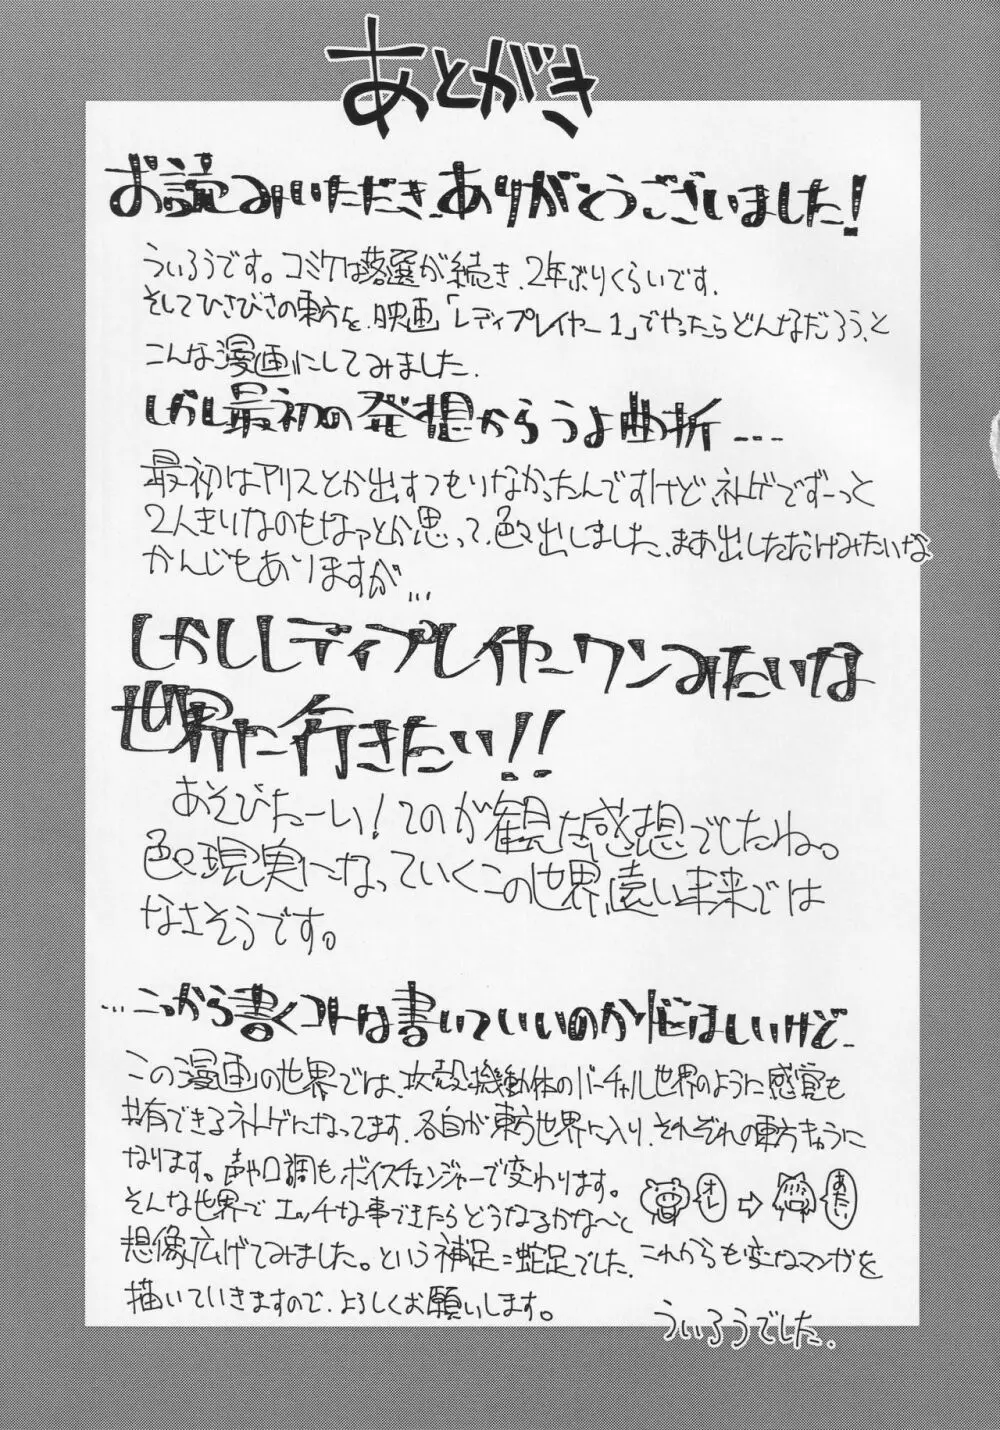 あとがき
お読みいただき、ありがとうございました!
ういろうです。コミケは落選が続き、2年ぶりくらいです。
そしてひさびさの東方を、映画「レディプレイヤー1」でやったらどんなだろう、と
こんな漫画にしてみました。
しかし最初の発想からうよ曲折...
最初はアリスとか出すつもりなかったんですけど、ネトゲでずーっと
2人きりなのもなァとか思って、色々出しました、まあ出しただけみたいな
かんじもありますが...
しかしレディプレイヤーワンみたいな
世界に行きたい!!
あそびたーい!てのが観た感想でしたね。
色々現実になっていくこの世界遠い未来では
なさそうです。
...こっから書くコトは書いていいのか
この漫画の世界では、攻殻機動体のバーチャル世界のように感覚も
共有できるネトゲになってます。各自が東方世界に入り、それぞれの東方キャラに
なります。声や口調もボイスチェンジャーで変わります。
オレ
⇨
あたい
そんな世界でエッチな事できたらどうなるかな〜と
想像広げてみました。という補足=蛇足でした。これからも変なマンガを
描いていきますので、よろしくお願いします。
ういろうでした。